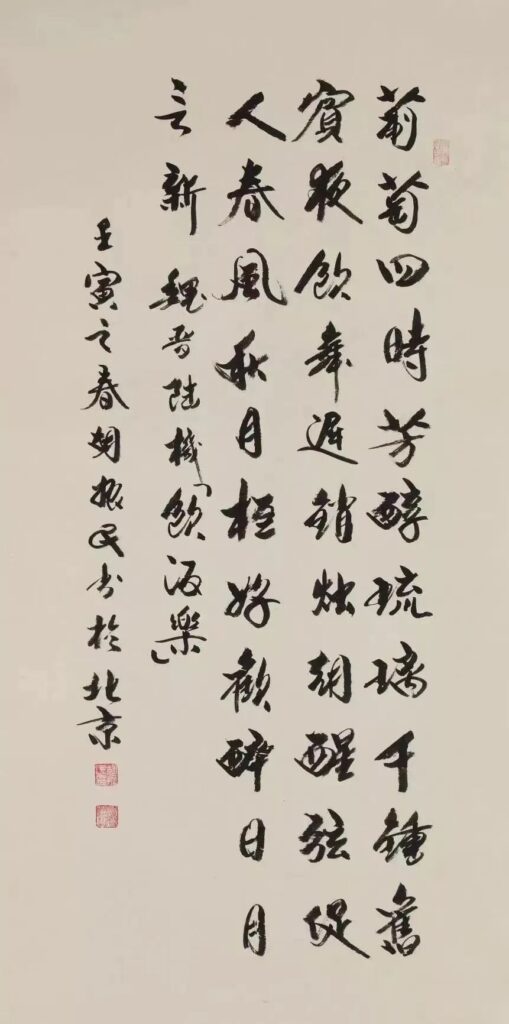 葡萄四時芳醇琉璃千鍾舊
賓夜飲舞遲銷烛朝醒弦促
人春風秋月恒好歡醉日月
言新 魏晋陸機「飲酒樂」
壬寅之春胡振民书於北京